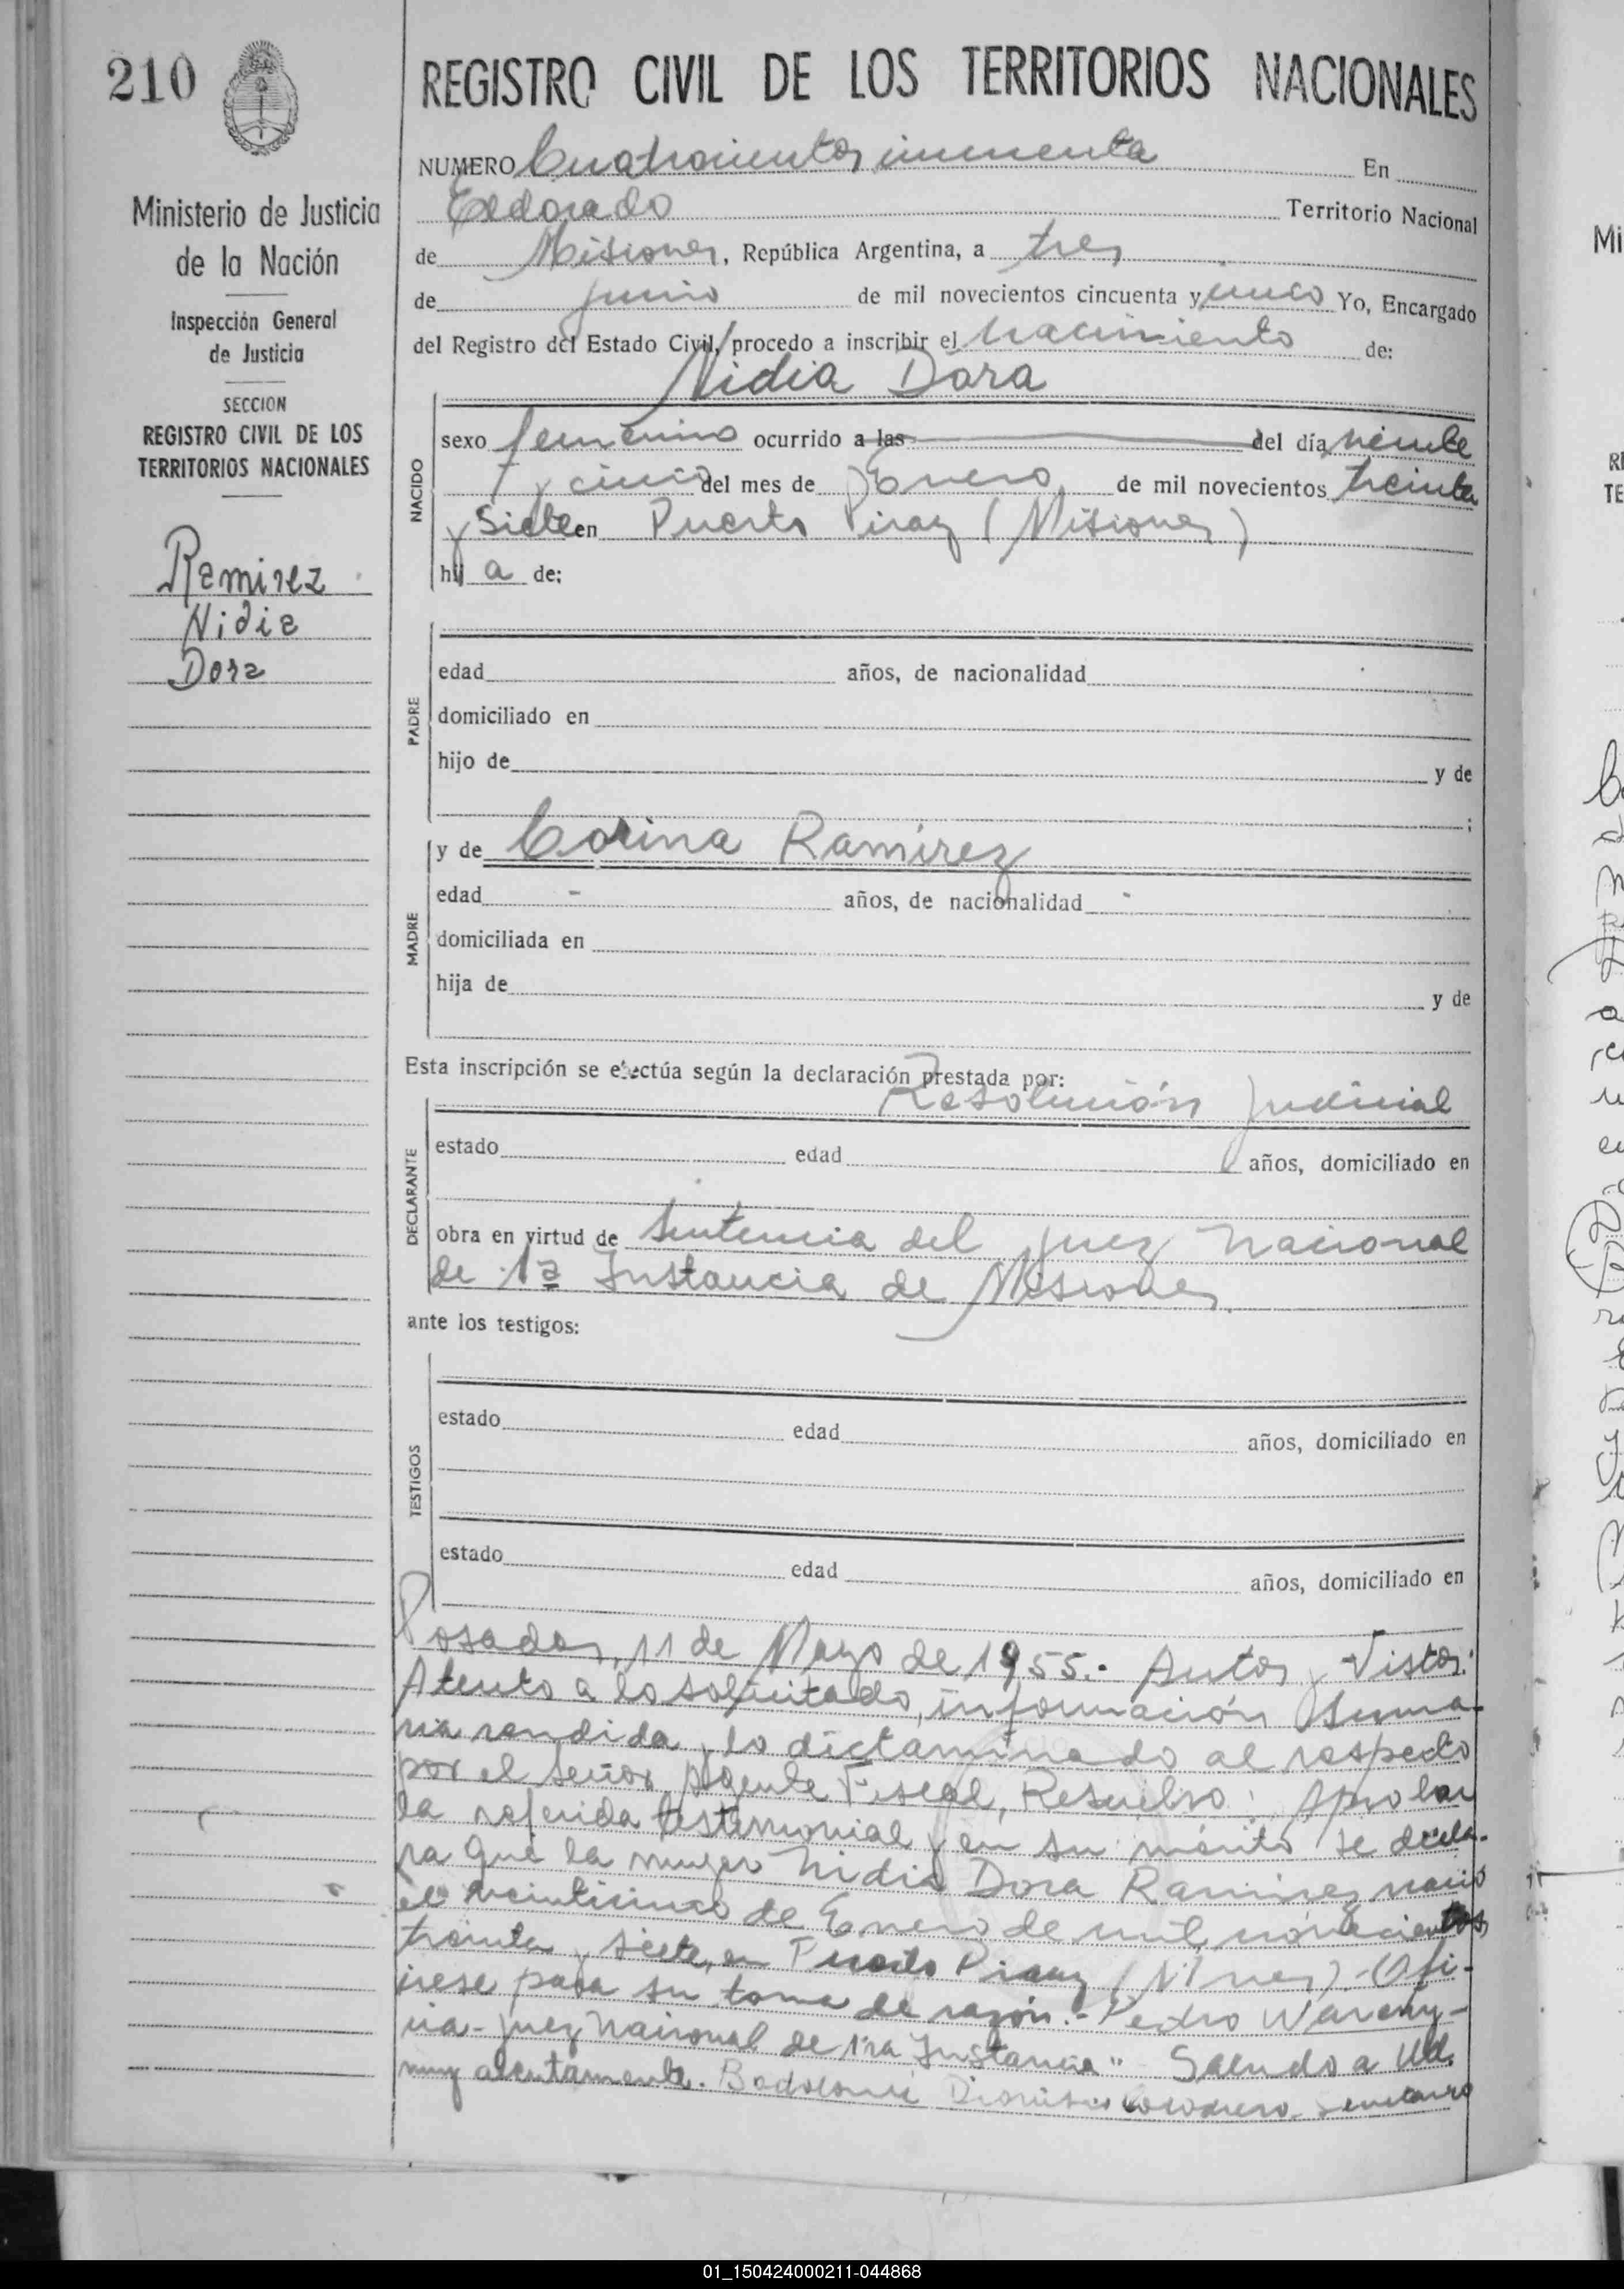 210
REGISTRO CIVIL DE LOS TERRITORIOS NACIONALES
Ministerio de Justicia
de la Nación
Inspección General
de Justicia
SECCION
REGISTRO CIVIL DE LOS
TERRITORIOS NACIONALES
Ramirez
Nidia
Dora
NUMERO Cuatrocientos cincuenta En
Eldorado Territorio Nacional
de Misiones, República Argentina, a tres
de junio de mil novecientos cincuenta y cinco Yo, Encargado
del Registro del Estado Civil, procedo a inscribir el nacimiento de:
Nidia Dora
NACIDO
sexo femenino ocurrido a las del día veinte
y cinco del mes de Enero de mil novecientos treinta
y Siete en Puerto Piray (Misiones)
hij a de:
PADRE
edad años, de nacionalidad
domiciliado en
hijo de y de
;
MADRE
y de Corina Ramírez
edad - años, de nacionalidad -
domiciliada en
hija de y de
Esta inscripción se efectúa según la declaración prestada por:
Resolución Judicial
DECLARANTE
estado edad años, domiciliado en
obra en virtud de Sentencia del Juez Nacional
de 1ª Instancia de Misiones.
ante los testigos:
TESTIGOS
estado edad años, domiciliado en
estado edad años, domiciliado en
Posadas, 11 de Mayo de 1955.- Autos y Vistos:
Atento a lo solicitado, información suma-
ria rendida y lo dictaminado al respecto
por el Señor Agente Fiscal, Resuelvo: Aprobar
la referida testimonial y en su mérito se decla-
ra que la mujer Nidia Dora Ramirez nació
el veinticinco de Enero de mil novecientos
treinta y siete, en Puerto Piray (Mnes).- Ofi-
ciese para su toma de razón.- Pedro
Juez Nacional de 1ra Instancia" Saludo a Ud.
muy atentamente.
01_150424000211-044868